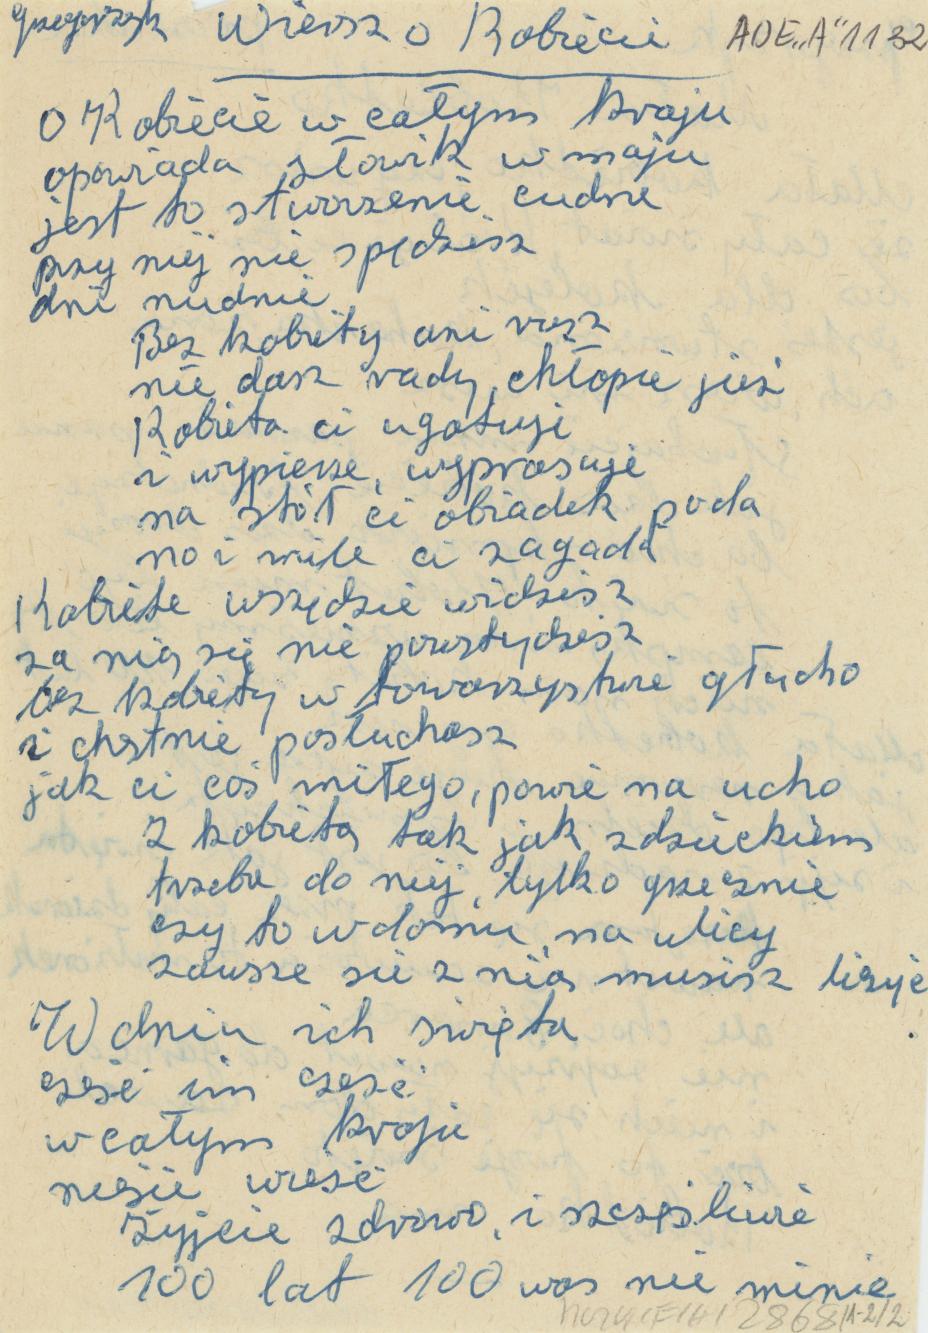 Grzegorzek Wiersz o Kobiecie ADE„A" 1132
O Kobiecie w całym kraju
opowiada słowik w maju
jest to stworzenie cudne
przy niej nie spędzisz
dni nudnie
Bez kobiety ani rusz
nie dasz rady, chłopie już
Kobieta ci ugotuji
i wypierze, wyprasuje
na stół ci obiadek poda
no i mile ci zagada
Kobiete wszędzie widzisz
za nią się nie powstydzisz
bez kobiety w towarzystwie głucho
i chętnie posłuchasz
jak ci coś miłego, powie na ucho
z kobietą tak jak zdzieckiem
trzeba do niej, tylko grzecznie
czy to w domu, na ulicy
zawsze sie z nią musisz liczyć
W dniu ich święta
cześć im cześć
w całym kraju
niesie wieść
Żyjcie zdrowo, i szczęśliwie
100 lat 100 was nie minie
2868/1-2/2